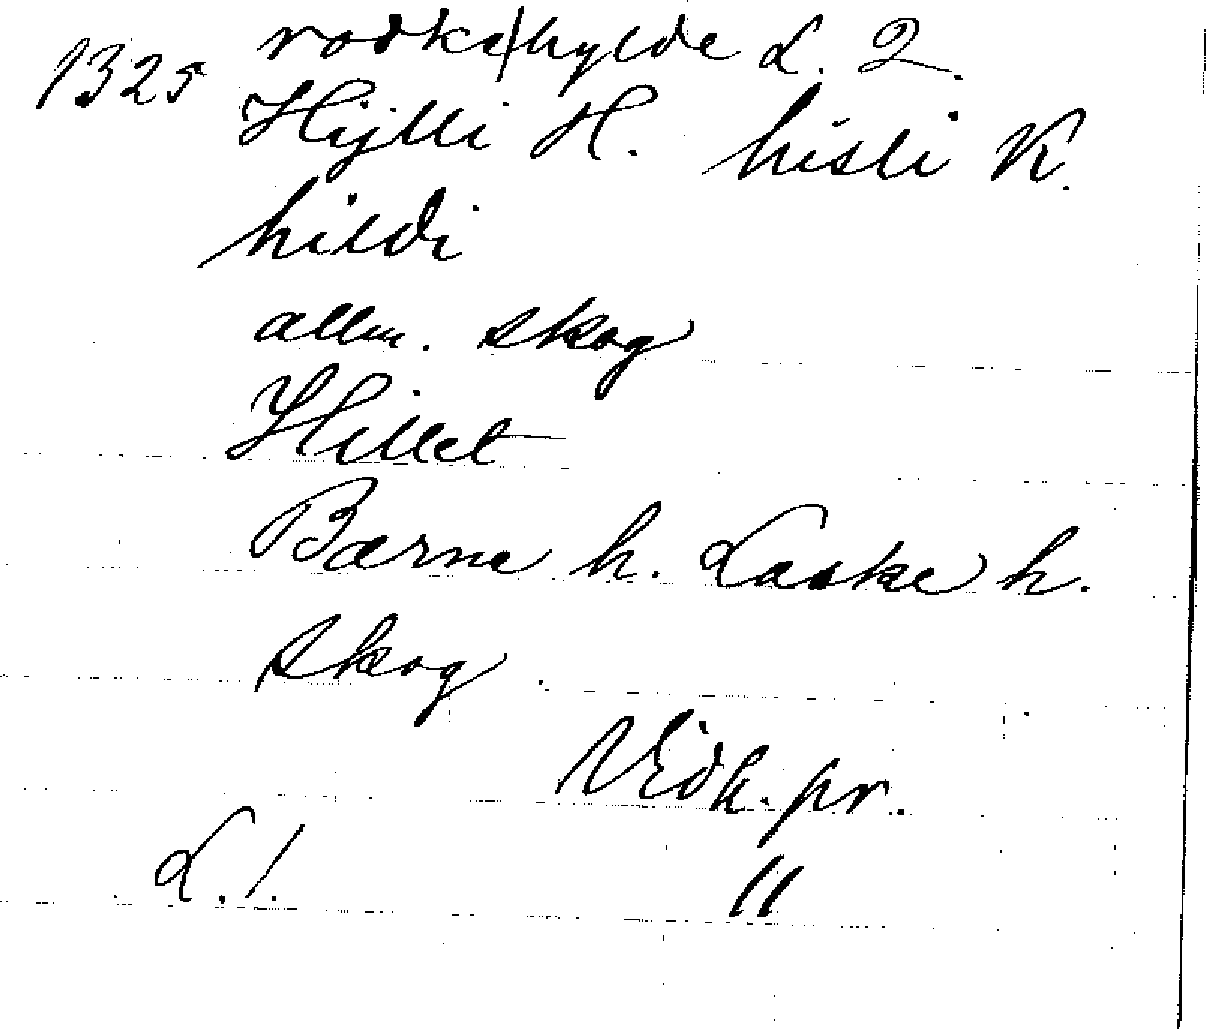 1325 rodka/hylde L. 2.
Hijlli H. hisli K.
hildi
allm. skog
Hillet
Barna h. Laska h.
skog
Vidh. pr.
L. 1. 11